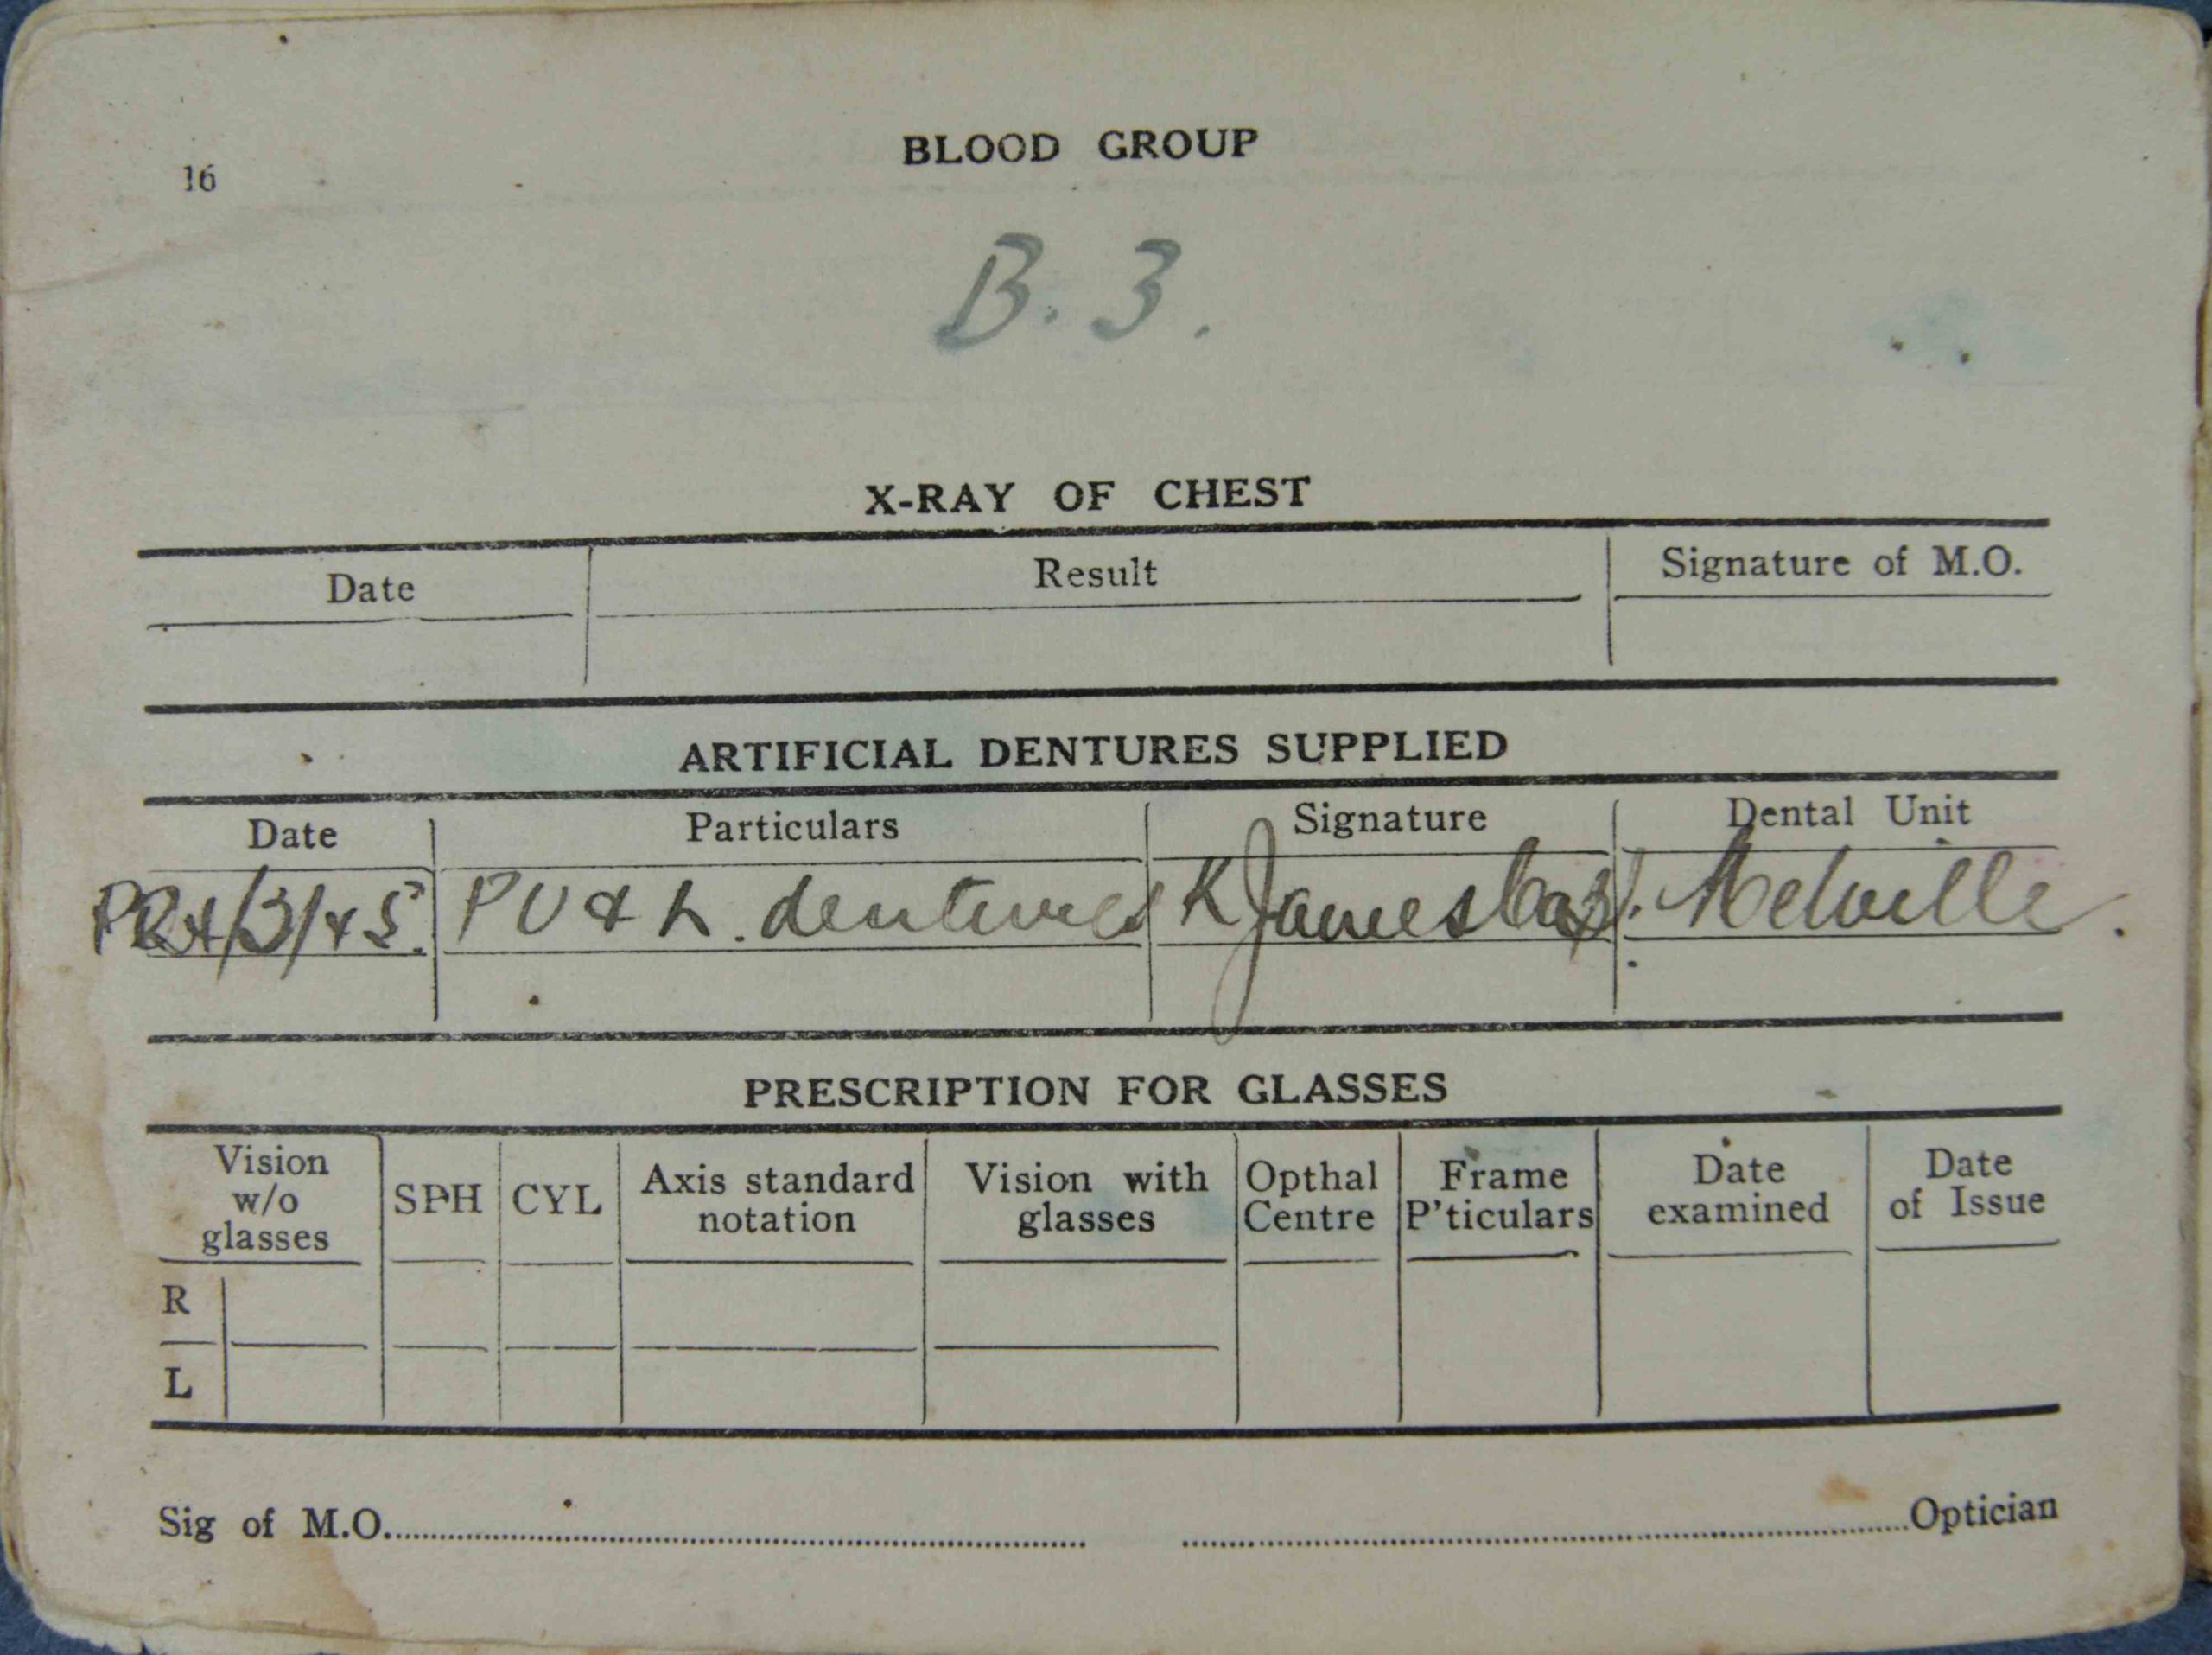 BLOOD GROUP
16
B. 3.
X-RAY OF CHEST
Date Result Signature of M.O.
ARTIFICIAL DENTURES SUPPLIED
Date Particulars Signature Dental Unit
PU & L. dentures K James Capt. Melville.
PRESCRIPTION FOR GLASSES
Vision w/o glasses SPH CYL Axis standard notation Vision with glasses Opthal Centre Frame P'ticulars Date examined Date of Issue
R
L
Sig of M.O. Optician